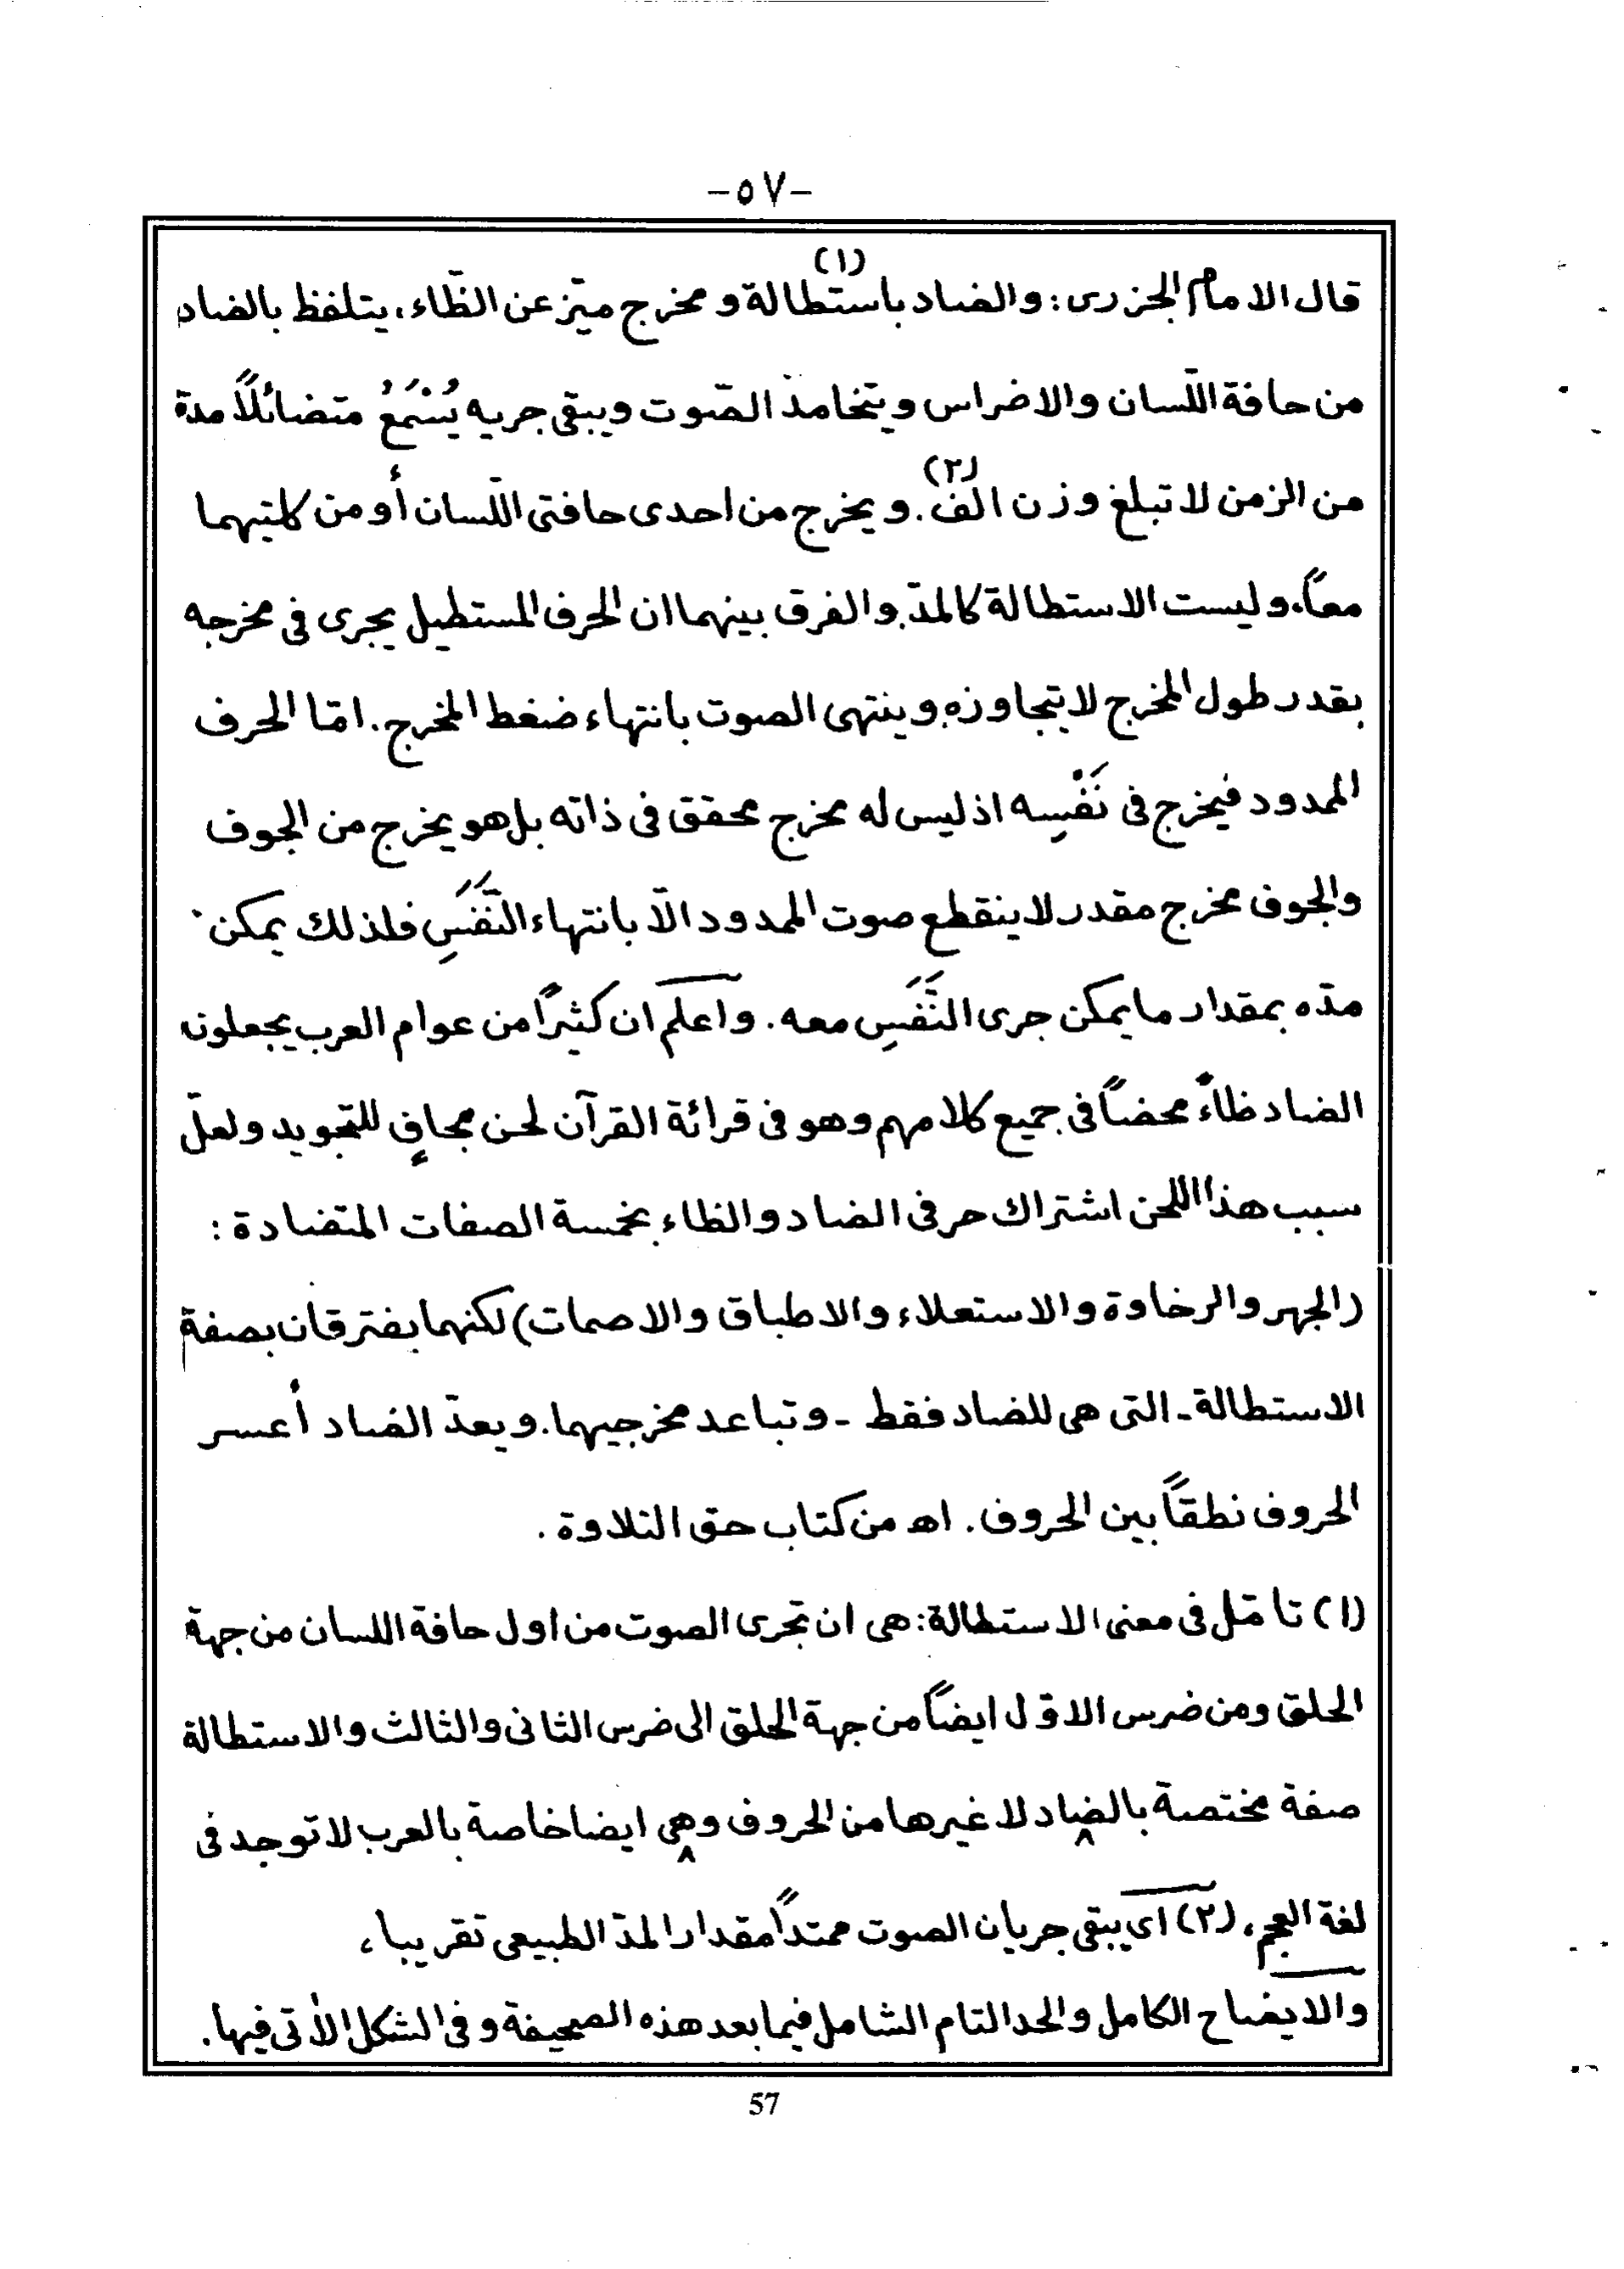 -٥٧-
قال الامام الجزرى : والضاد باستطالة (١) ومخرج ميّز عن الظّاء، يتلفظ بالضاد
من حافة اللّسان والاضراس ويتخامد الصّوت ويبقى جريه يُسْمَعُ متضائلاً مدة
من الزمن لا تبلغ وزن الف (٢). ويخرج من احدى حافتى اللّسان أو من كلتيهما
معاً، وليست الاستطالة كالمدّ والفرق بينهما ان الحرف المستطيل يجرى فى مخرجه
بقدر طول المخرج لا يتجاوزه وينتهى الصوت بانتهاء ضغط المخرج. امّا الحرف
الممدود فيخرج فى نَفْسِه اذ ليس له مخرج محقق فى ذاته بل هو يخرج من الجوف
والجوف مخرج مقدر لا ينقطع صوت الممدود الّا بانتهاء النَّفَسِ فلذلك يمكن
مدّه بمقدار ما يمكن جرى النَّفَسِ معه. واعلم ان كثيراً من عوام العرب يجعلون
الضاد ظاءً محضاً فى جميع كلامهم وهو فى قرائة القرآن لحن مجافٍ للتجويد ولعلّ
سبب هذا اللحن اشتراك حرفى الضاد والظاء بخمسة الصفات المتضادة :
(الجهر والرخاوة والاستعلاء والاطباق والاصمات) لكنهما يفترقان بصفة
الاستطالة - التى هى للضاد فقط - وتباعد مخرجيهما. ويعدّ الضاد أعسر
الحروف نطقاً بين الحروف. اه من كتاب حق التلاوة .
(١) تامّل فى معنى الاستطالة : هى ان تجرى الصوت من اول حافة اللسان من جهة
الحلق ومن ضرس الاوّل ايضاً من جهة الحلق الى ضرس الثانى والثالث والاستطالة
صفة مختصة بالضاد لا غيرها من الحروف وهى ايضا خاصة بالعرب لا توجد فى
لغة العجم، (٢) اى يبقى جريان الصوت ممتداً مقدار المدّ الطبيعى تقريبا،
والايضاح الكامل والحد التام الشامل فيما بعد هذه الصحيفة وفى الشكل الأتى فيها.
57